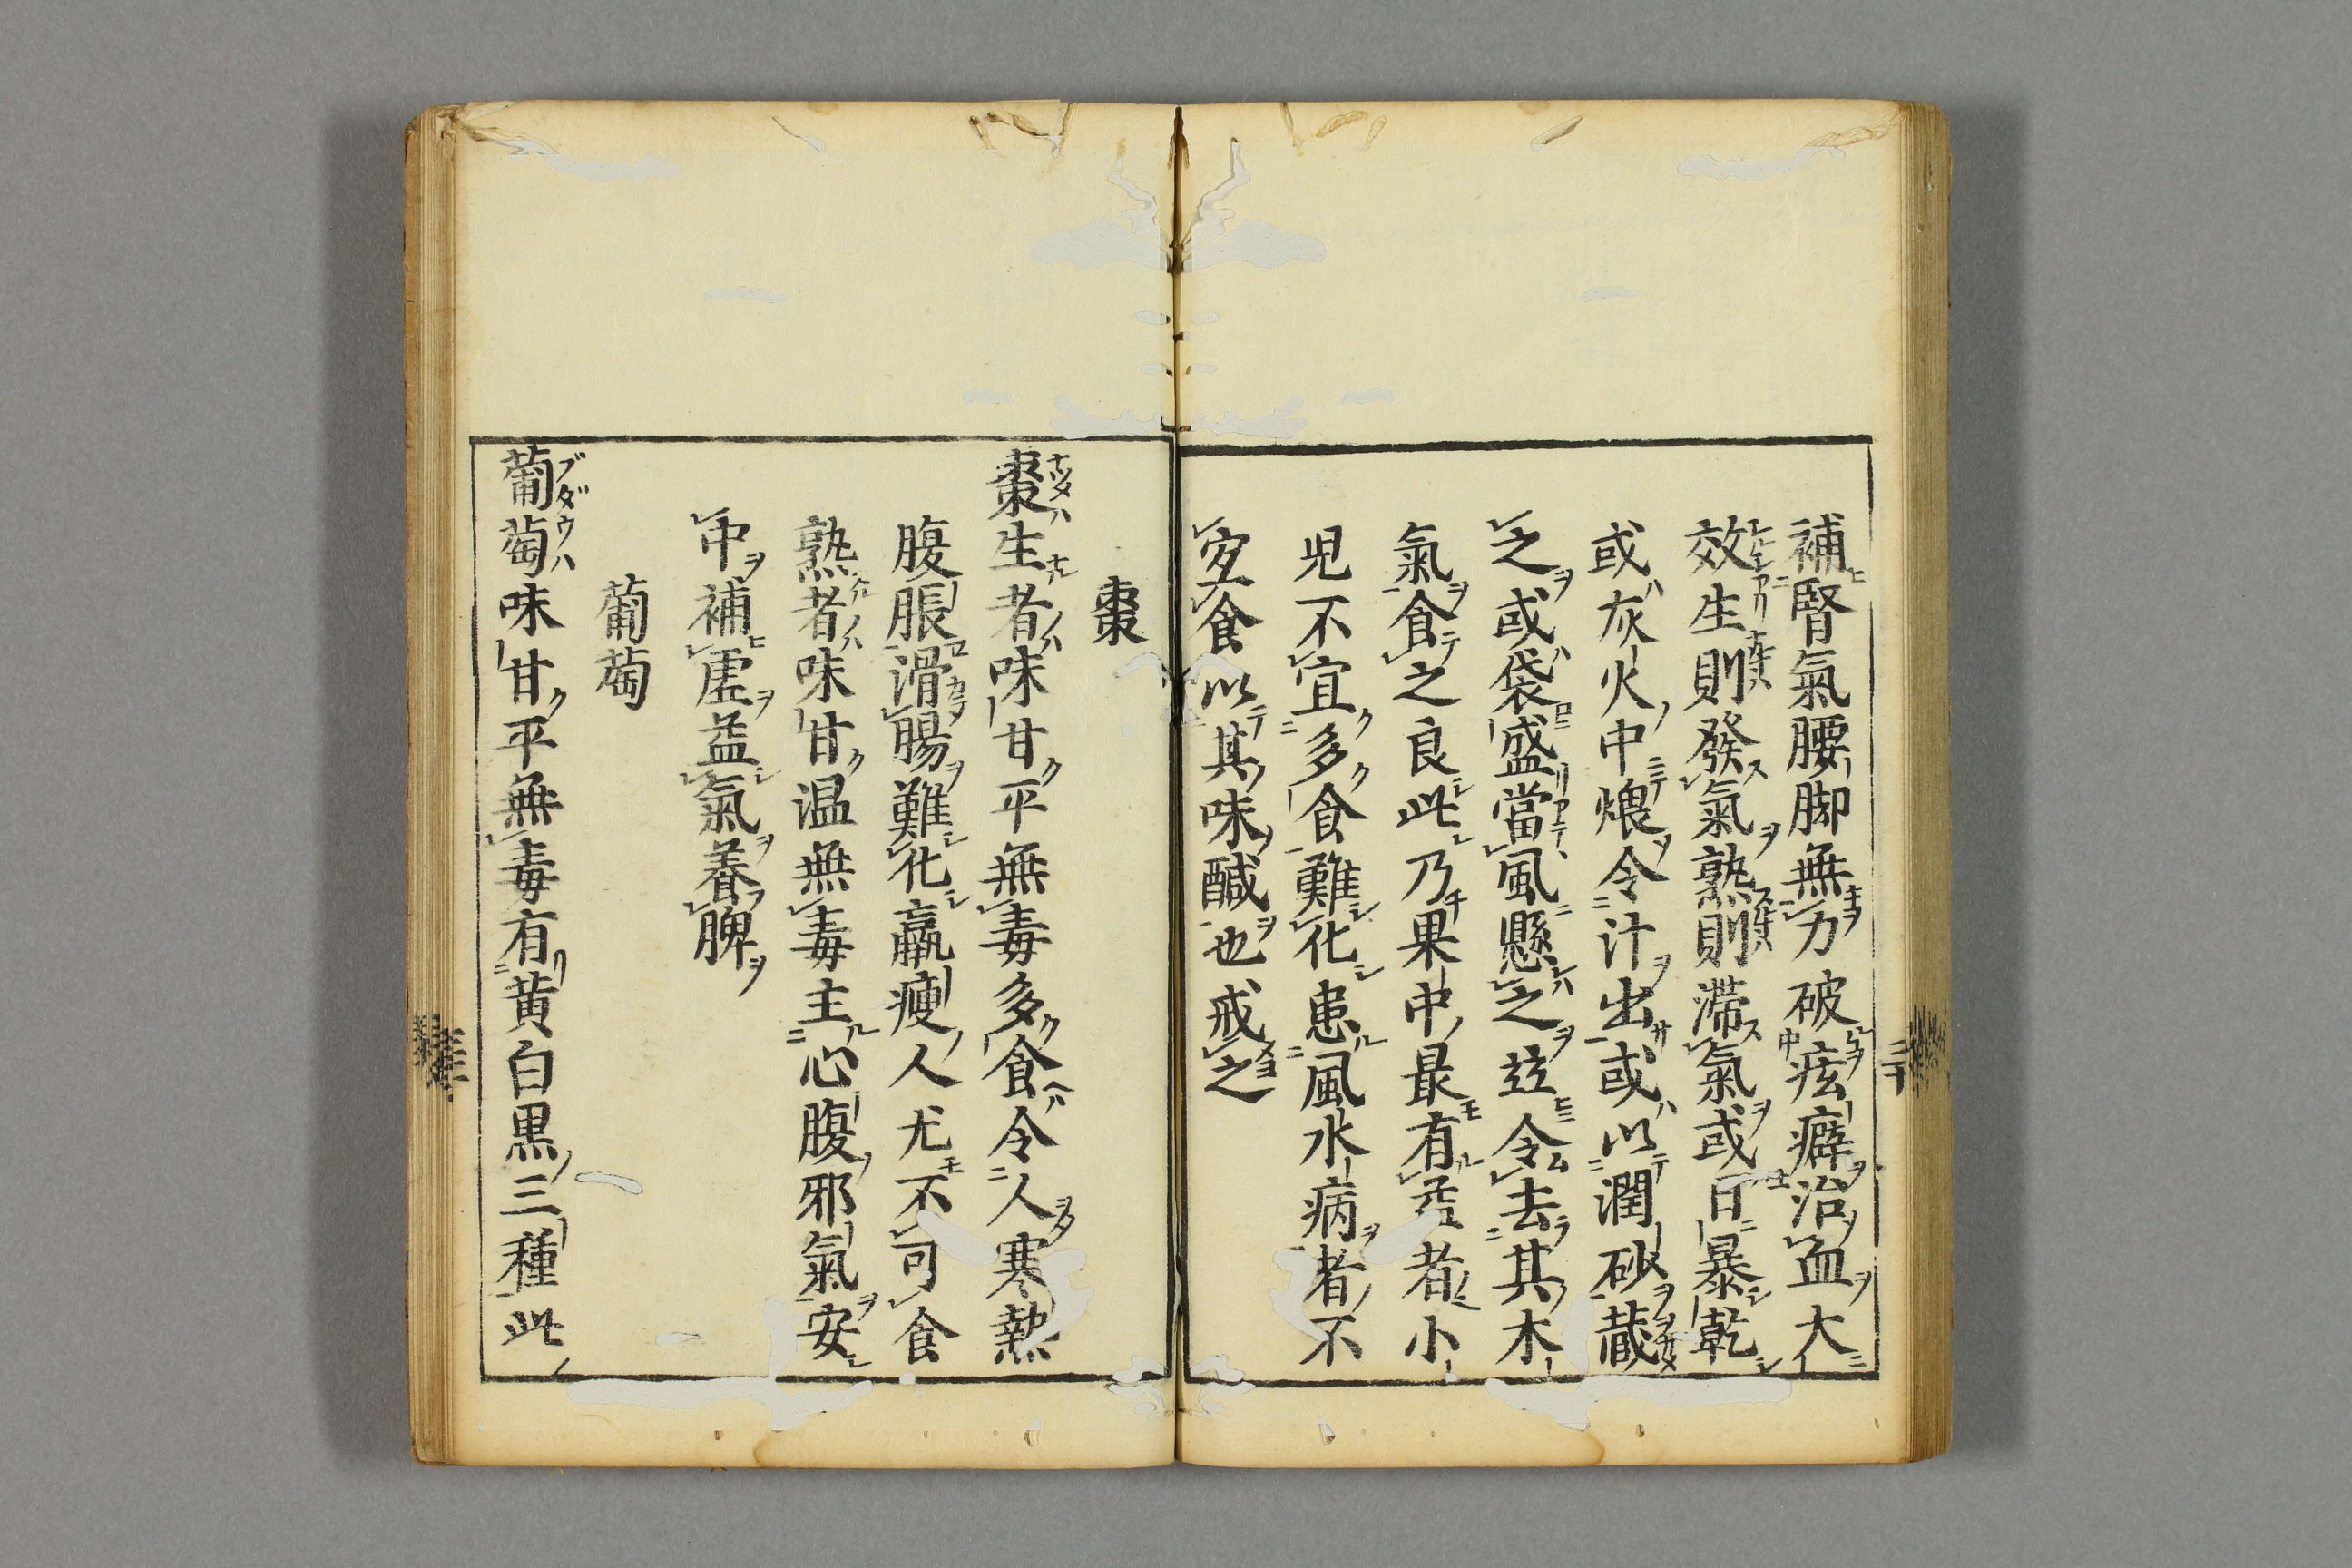 補腎氣腰脚無力破痃癖治血大
效生則發氣熟則滯氣或日暴乾
或灰火中煨令汁出或以潤砂藏
之或袋盛當風懸之竝令去其木
氣食之良此乃果中最有益者小
児不宜多食難化患風水病者不
宜食以其味醎也戒之
棗
棗生者味甘平無毒多食令人寒熱
腹脹滑腸難化羸瘦人尤不可食
熟者味甘温無毒主心腹邪氣安
中補虚益氣養脾
葡萄
葡萄味甘平無毒有黄白黒三種此